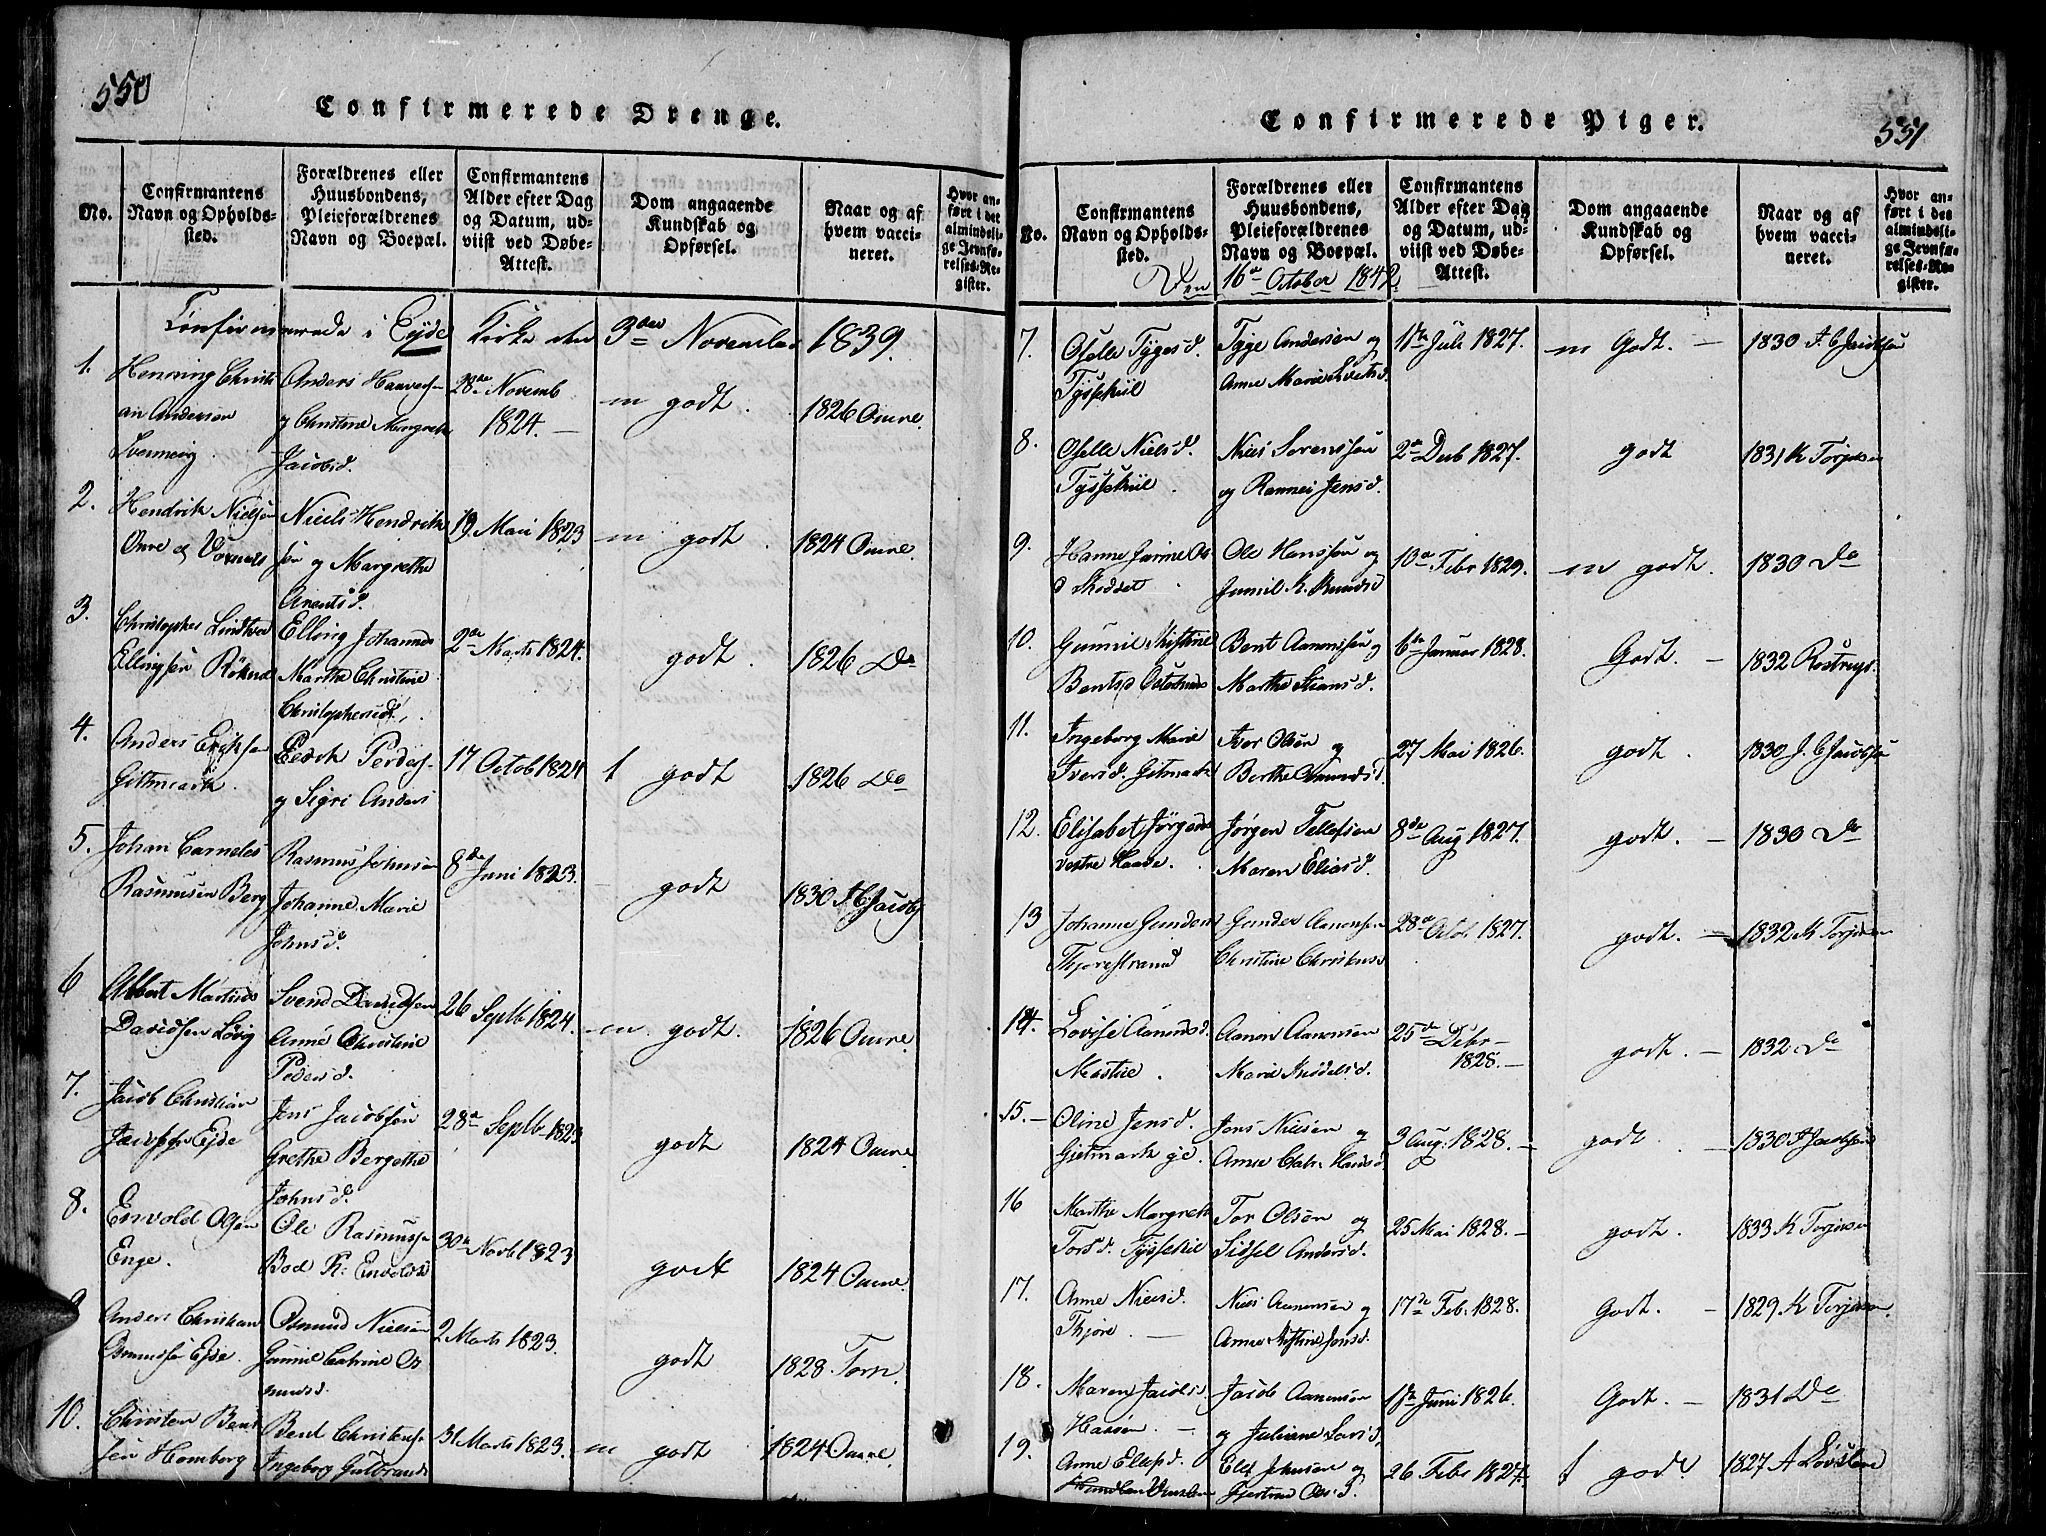 550
Confirmerede Drenge.
No.
Confirmantens
Navn og Opholds-
sted.
Forældrenes eller
Huusbondens,
Pleieforældrenes
Navn og Boepæl.
Confirmantens
Alder efter Dag
og Datum, ud-
viist ved Døbe-
Attest.
Dom angaaende
Kundskab og
Opførsel.
Naar og af
hvem vacci-
neret.
Hvor an-
ført i det
almindeli-
ge Jevnfø-
relses-Re-
gister.
Confirmerede i Eyde Kirke den 3die November 1839.
1.
Henning Christi
an Andersen
Anders Haavorsen
og Christine Margrethe
Jacobsd.
28de Novemb
1824.
m godt.
1826 Omre.
2.
Hendrik Nielsen
Niels Hendrik
sen og Margrethe
Arentsd.
19 Mari 1823
m godt.
1824 Omre.
3.
Christopher
Ellingsen
Elling Johannes
Marthe Christine
Christophersd.
2de Marts 1824.
godt.
1826 Do
4.
Anders Eriksen
Gittmark.
Pedersen
og Sigri Anders
17 Octob 1824
t godt
1826 Do
5.
Johan Carnelius
Rasmussen Berg
Rasmus Johnsen
Johanne Marie
Johnsd.
8de Juni 1823.
godt
1830 Jacobs
6
Albert Martinus
Davidsen Løvig
Svend Davidsen
Anne Christine
Pedersd.
26 Septb 1824.
m godt.
1826 Omre
7.
Jacob Christian
Eyde
Jens Jacobsen
Grethe Bergethe
Johnsd.
28de Septb 1823
godt
1824 Omre
8.
Envold Olsen
Enge.
Ole Rasmussen
Bod K: Envoldsd
30te Novb 1823
godt
1824 Omre.
9
Anders Christian
Osmunds Eyde.
Osmund Nielsen
Gunnild Catrine Os
mundsd.
2 Marts 1823.
godt
1828. Torp.
10.
Christen Bent
sen Homborg
Bent Christensen
Ingeborg Gulbrands
31 Marts 1823.
m godt
1824 Omre.
Confirmerede Piger.
551
No.
Confirmantens
Navn og Opholds-
sted.
Forældrenes eller
Huusbondens,
Pleieforældrenes
Navn og Boepæl.
Confirmantens
Alder efter Dag
og Datum, ud-
viist ved Døbe-
Attest.
Dom angaaende
Kundskab og
Opførsel.
Naar og af
hvem vacci-
neret.
Hvor an-
ført i det
almindeli-
ge Jevnfø-
relses-Re-
gister.
Den 16de October 1842
7.
Oselle Tygesd.
Tysseküil
Tyge Andersen og
Anne Marie
17de Juli 1827.
m Godt. —
1830
8.
Oselle Nielsd.
Tysseküil
Niels Sorenssen
og Rannei Jensd.
2de Decb 1827.
godt
1831 K Torjesen
9.
Hanne Jarine
Ole Hanssen og
Gunnil K. Knudsd
10de Febr 1829.
m godt.
1830 Do
10.
Gunnil Kistine
Bentsd
Bent Aanonsen og
Marthe
6te Januar 1828.
Godt. —
1832 Rostrup.
11.
Ingeborg Marie
Iversd. Gitmark
Iver Olsen og
Berthe Osmundsd
27 Mai 1826.
godt.
1830 J. C Jacobsen
12.
Elisabet Jørgens
vestre Haave.
Jørgen Tellefsen
Maren Eliasd.
8de Aug 1827.
godt. —
1830 Do
13
Johanne Gunders
Thjorestrand
Gunder Aanonsen
Christine Christensd
28de Octb. 1827.
godt. —
1832 K Torjesen
14.
Lovise Aanonsd.
Aanon Aanonsen
Marie Knudsd.
25de Debr —
1828. —
godt. —
1832 Do
15. —
Oline Jensd.
Gietmark
Jens Nielsen og
Anne Cat.
3 Aug. 1828. —
godt.
1830 Jacobsen
16
Marthe Margrethe
Torsd. Tyssekiil
Tor Olsen og
Sidsel Andersd.
25 Mai 1828. —
godt.
1833 K Torjesen
17.
Anne Nielsd.
Thjøre. —
Niels Aanonsen og
Anne Kistine Jensd.
17de Feb. 1828.
Godt. —
1829 K Torjesen
18.
Maren Jacobsd.
Jacob Aanonsen
og Juliane
17de Juni 1826.
Godt. —
1831 Do
19.
Anne Ellefsd.
Elef Johnsen og
Gjertrud Olsd.
26 Febr 1827.
t godt
1827 A Løvsland